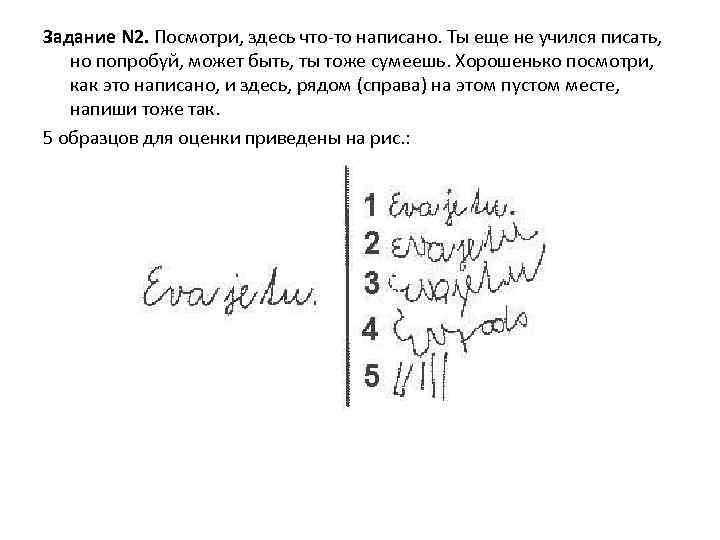 Задание N 2. Посмотри, здесь что-то написано. Ты еще не учился писать,
но попробуй, может быть, ты тоже сумеешь. Хорошенько посмотри,
как это написано, и здесь, рядом (справа) на этом пустом месте,
напиши тоже так.
5 образцов для оценки приведены на рис. :
Eva je tu.
1 Eva je tu.
2 Eva je tu
3
4
5